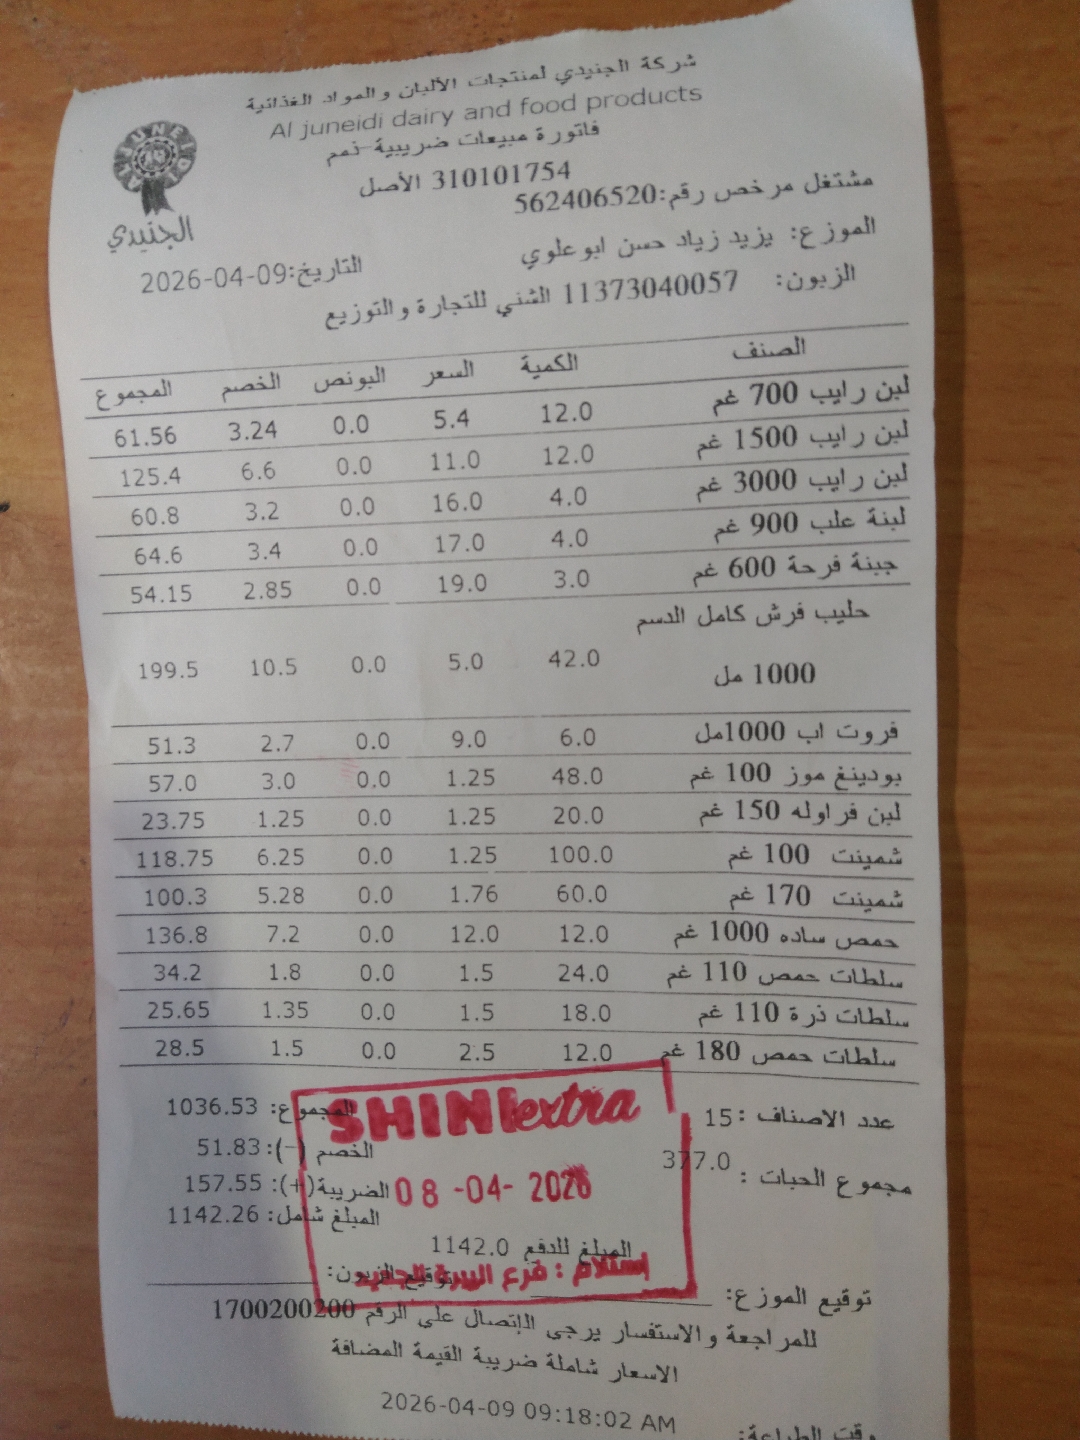 شركة الجنيدي لمنتجات الألبان والمواد الغذائية
Al juneidi dairy and food products
فاتورة مبيعات ضريبية-نمم
310101754 الأصل
مشتغل مرخص رقم:562406520
الجنيدي
الموزع: يزيد زياد حسن ابو علوي
التاريخ:2026-04-09
الزبون: 11373040057 الشني للتجارة والتوزيع
الصنف الكمية السعر البونص الخصم المجموع
لبن رايب 700 غم 12.0 5.4 0.0 3.24 61.56
لبن رايب 1500 غم 12.0 11.0 0.0 6.6 125.4
لبن رايب 3000 غم 4.0 16.0 0.0 3.2 60.8
لبنة علب 900 غم 4.0 17.0 0.0 3.4 64.6
جبنة فرحة 600 غم 3.0 19.0 0.0 2.85 54.15
حليب فرش كامل الدسم
1000 مل 42.0 5.0 0.0 10.5 199.5
فروت اب 1000مل 6.0 9.0 0.0 2.7 51.3
بودينغ موز 100 غم 48.0 1.25 0.0 3.0 57.0
لبن فراوله 150 غم 20.0 1.25 0.0 1.25 23.75
شمينت 100 غم 100.0 1.25 0.0 6.25 118.75
شمينت 170 غم 60.0 1.76 0.0 5.28 100.3
حمص ساده 1000 غم 12.0 12.0 0.0 7.2 136.8
سلطات حمص 110 غم 24.0 1.5 0.0 1.8 34.2
سلطات ذرة 110 غم 18.0 1.5 0.0 1.35 25.65
سلطات حمص 180 غم 12.0 2.5 0.0 1.5 28.5
عدد الاصناف :15
المجموع: 1036.53
الخصم (-): 51.83
مجموع الحبات : 377.0
الضريبة(+): 157.55
المبلغ شامل: 1142.26
المبلغ للدفع 1142.0
SHINI extra
08 -04- 2026
استلام : فرع البيرة الجديد
توقيع الزبون:
توقيع الموزع:
للمراجعة والاستفسار يرجى الإتصال على الرقم 1700200200
الاسعار شاملة ضريبة القيمة المضافة
وقت الطباعة: 2026-04-09 09:18:02 AM